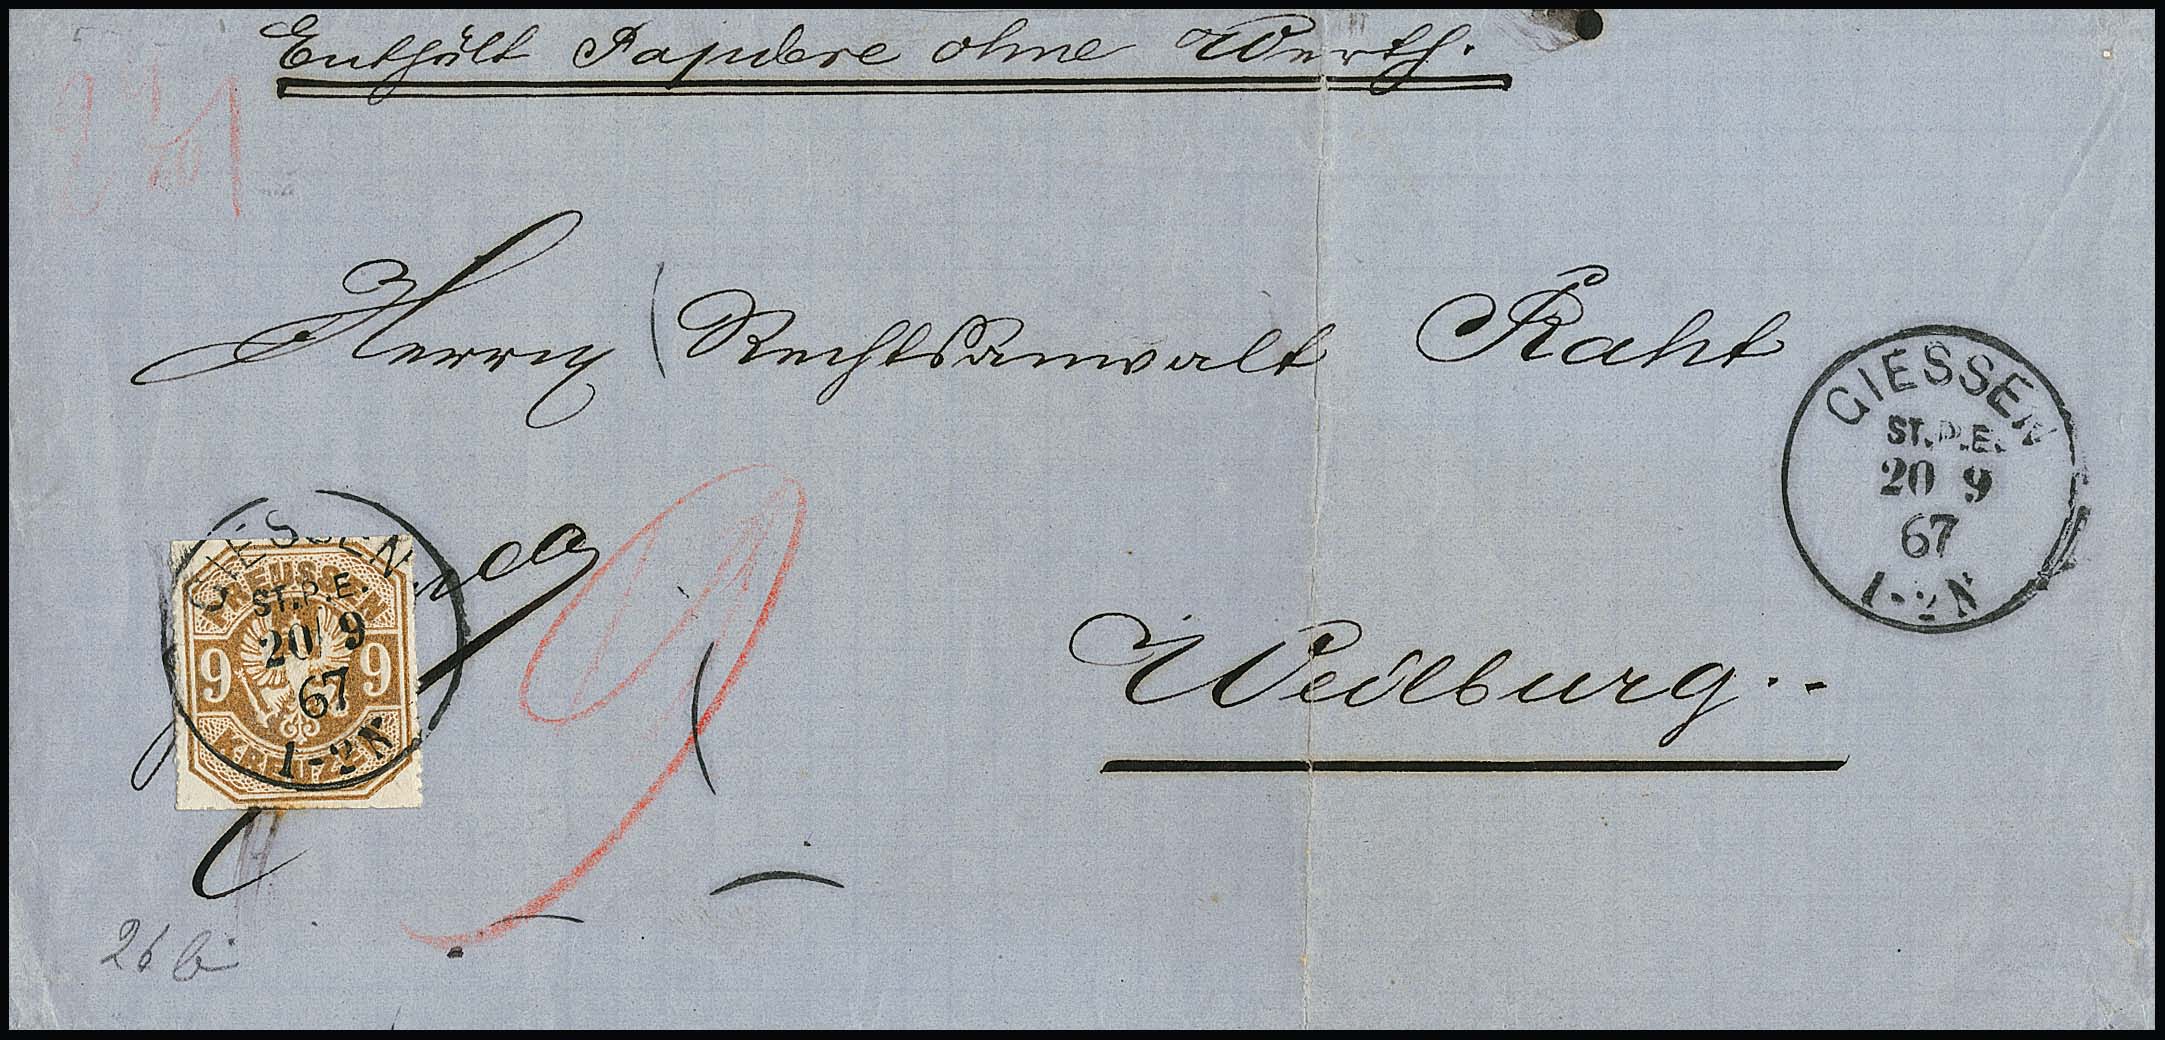 Enthält Papiere ohne Werth.
Herrn Rechtsanwalt Raht
GIESSEN
ST.P.E.
20 9
67
1-2N
GIESSEN
ST.P.E.
20 9
67
1-2N
PREUSSEN
9 9
KREUZER
9
Weilburg..